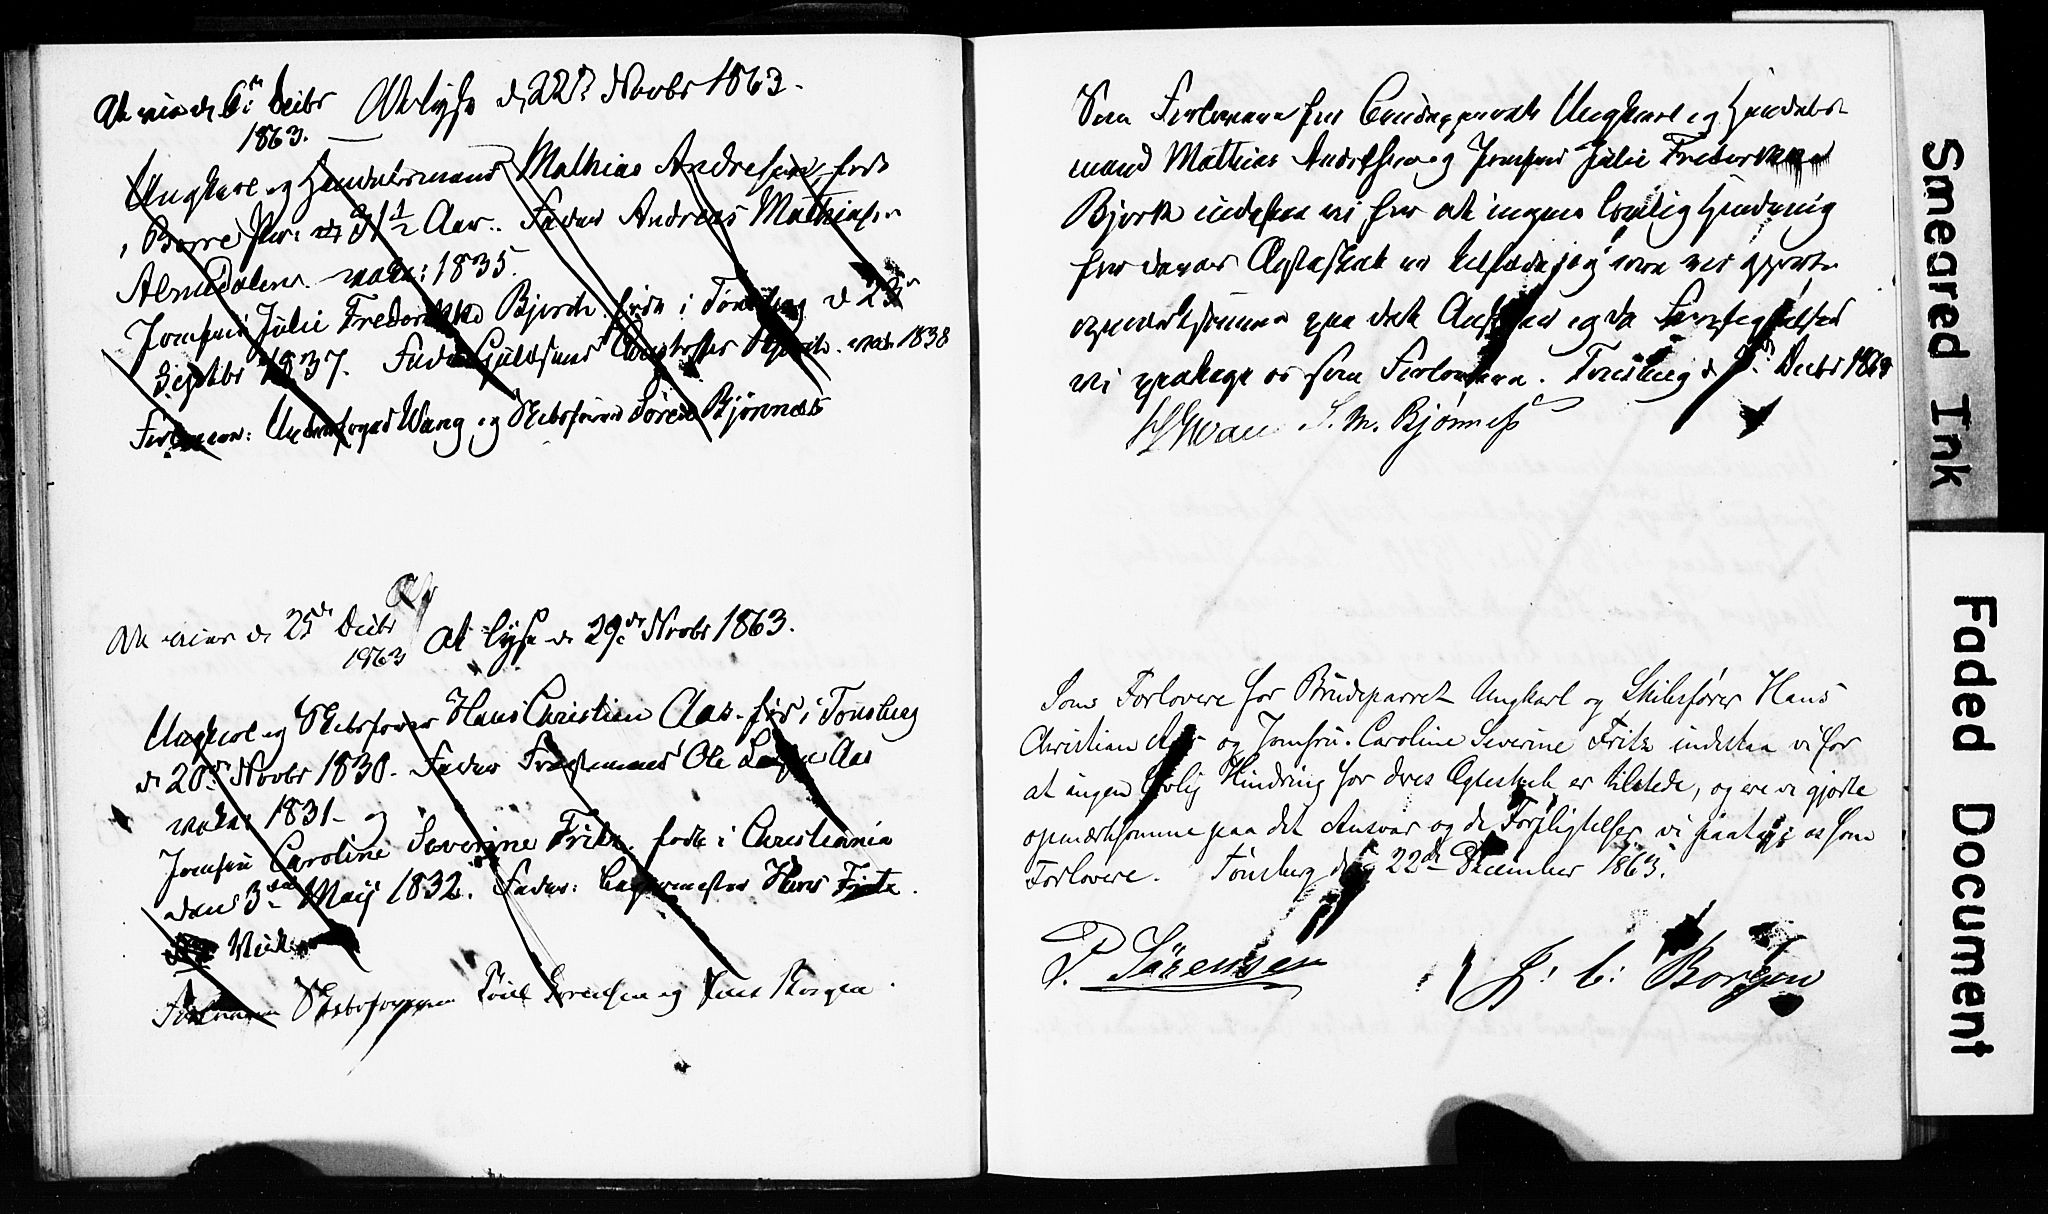 At vie d. 6te Decbr
1863.
At lyse d. 22de Novbr 1863.
Ungkarl og Handelsmand Mathias Andresen, født
i Borre
31 1/2 Aar. Fader Andreas Mathiasen
vakc: 1835.
Jomfru Julie Frederikke Bjerck født i Tønsberg d 23
Septbr 1837. Fader Guldsmed Bjerck. vac. 1838
Forlovere: Wang og Skibsfører Søren Bjønness
At vies d. 25de Decbr
1863
At lyse d. 29de Novbr 1863.
Ungkarl og Skibsfører Hans Christian Aas. fød i Tønsberg
d. 20de Novbr 1830. Fader Ole Aas
vakc: 1831 - og
Jomfru Caroline Severine Fritz. født i Christiania
den 3die Maij 1832. Fader: Hans Fritz.
Forlovere Skibsførerne Sørensen og Borgen.
Som Forlovere for Brudeparret Ungkarl og Handels-
mand Mathias Andresen og Jomfru Julie Frederikke
Bjerck indestaa vi for at ingen lovlig Hindring
for deres Ægteskab er tilstede, og ere vi gjorte
opmærksomme paa det Ansvar og de Forpligtelser
vi paatage os som Forlovere. Tønsberg d. Decbr 1863
S. M. Bjønness
Som Forlovere for Brudeparret Ungkarl og Skibsfører Hans
Christian Aas og Jomfru Caroline Severine Fritz indestaa vi for
at ingen lovlig Hindring for deres Ægteskab er tilstede, og ere vi gjorte
opmærksomme paa det Ansvar og de Forpligtelser vi paatage os som
Forlovere. Tønsberg den 22de December 1863.
P. Sörensen
J. C. Borgen
Smeared Ink
Faded Document